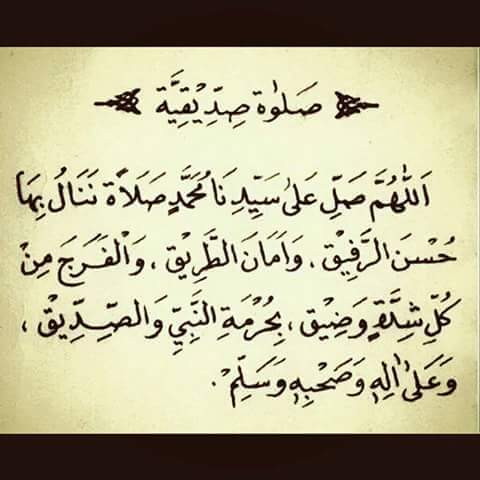 صَلٰوة صِدِّيْقِيَّة
اَللّٰهُمَّ صَلِّ عَلىٰ سَيِّدِنَا مُحَمَّدٍ صَلَاةً نَنَالُ بِهَا
حُسْنَ الرَّفِيْقِ ، وَاَمَانَ الطَّرِيْقِ ، وَالْفَرَجَ مِنْ
كُلِّ شِدَّةٍ وَضِيْقٍ ، بِحُرْمَةِ النَّبِيِّ وَالصِّدِّيْقِ ،
وَعَلىٰ اٰلِهٖ وَصَحْبِهٖ وَسَلِّمْ .